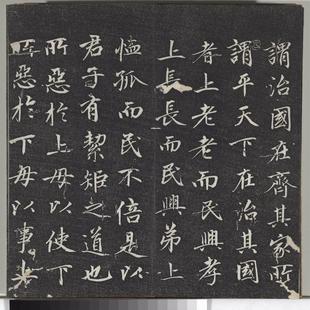 謂治國在齊其家所
謂平天下在治其國
者上老老而民興孝
上長長而民興弟上
恤孤而民不倍是以
君子有絜矩之道也
所惡於上毋以使下
所惡於下毋以事上